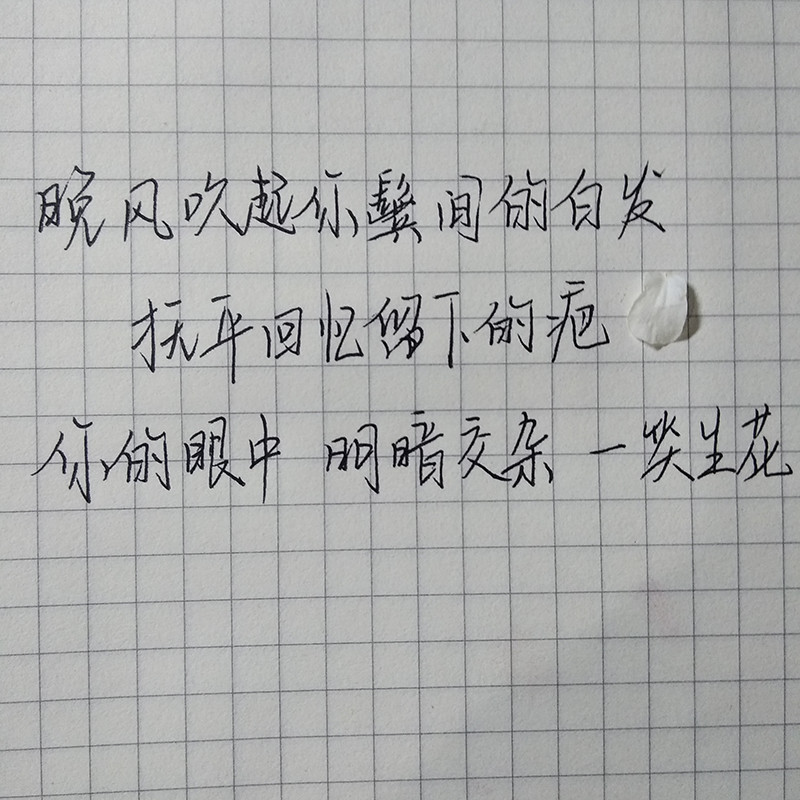 晚风吹起你鬓间的白发
抚平回忆留下的疤
你的眼中 明暗交杂 一笑生花